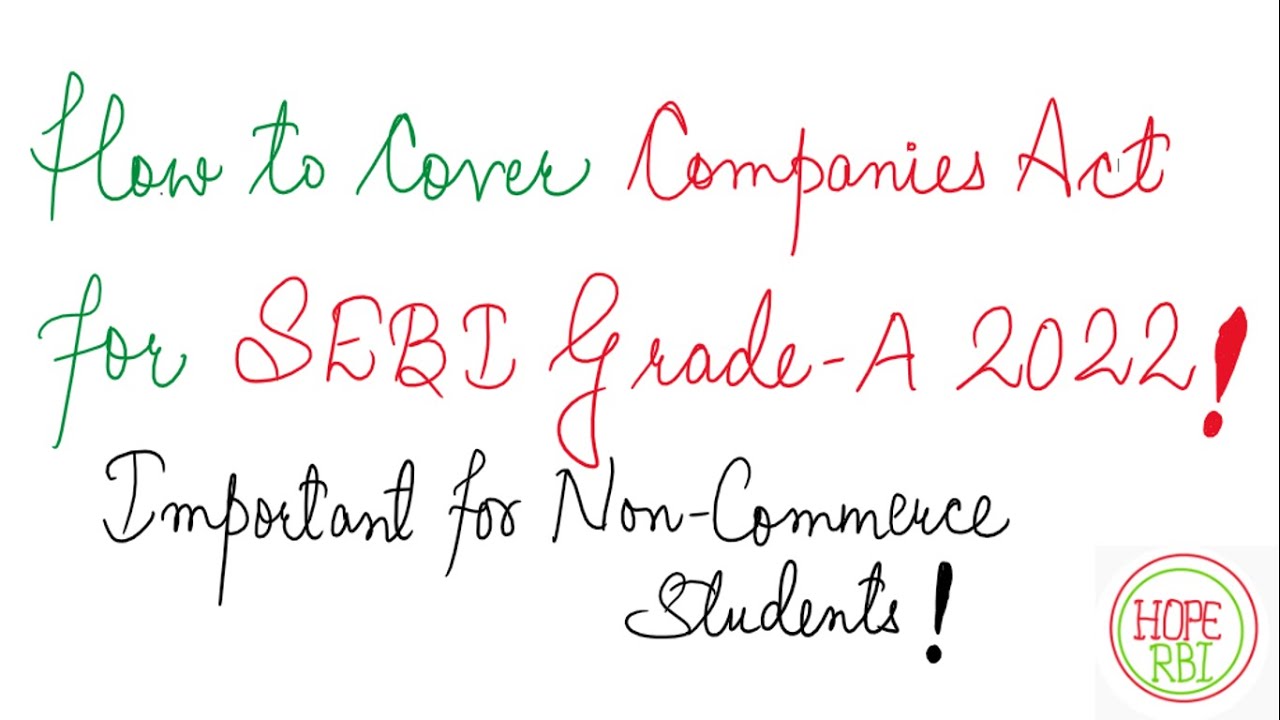 How to Cover Companies Act
for SEBI Grade-A 2022!
Important for Non-Commerce
Students!
HOPE
RBI